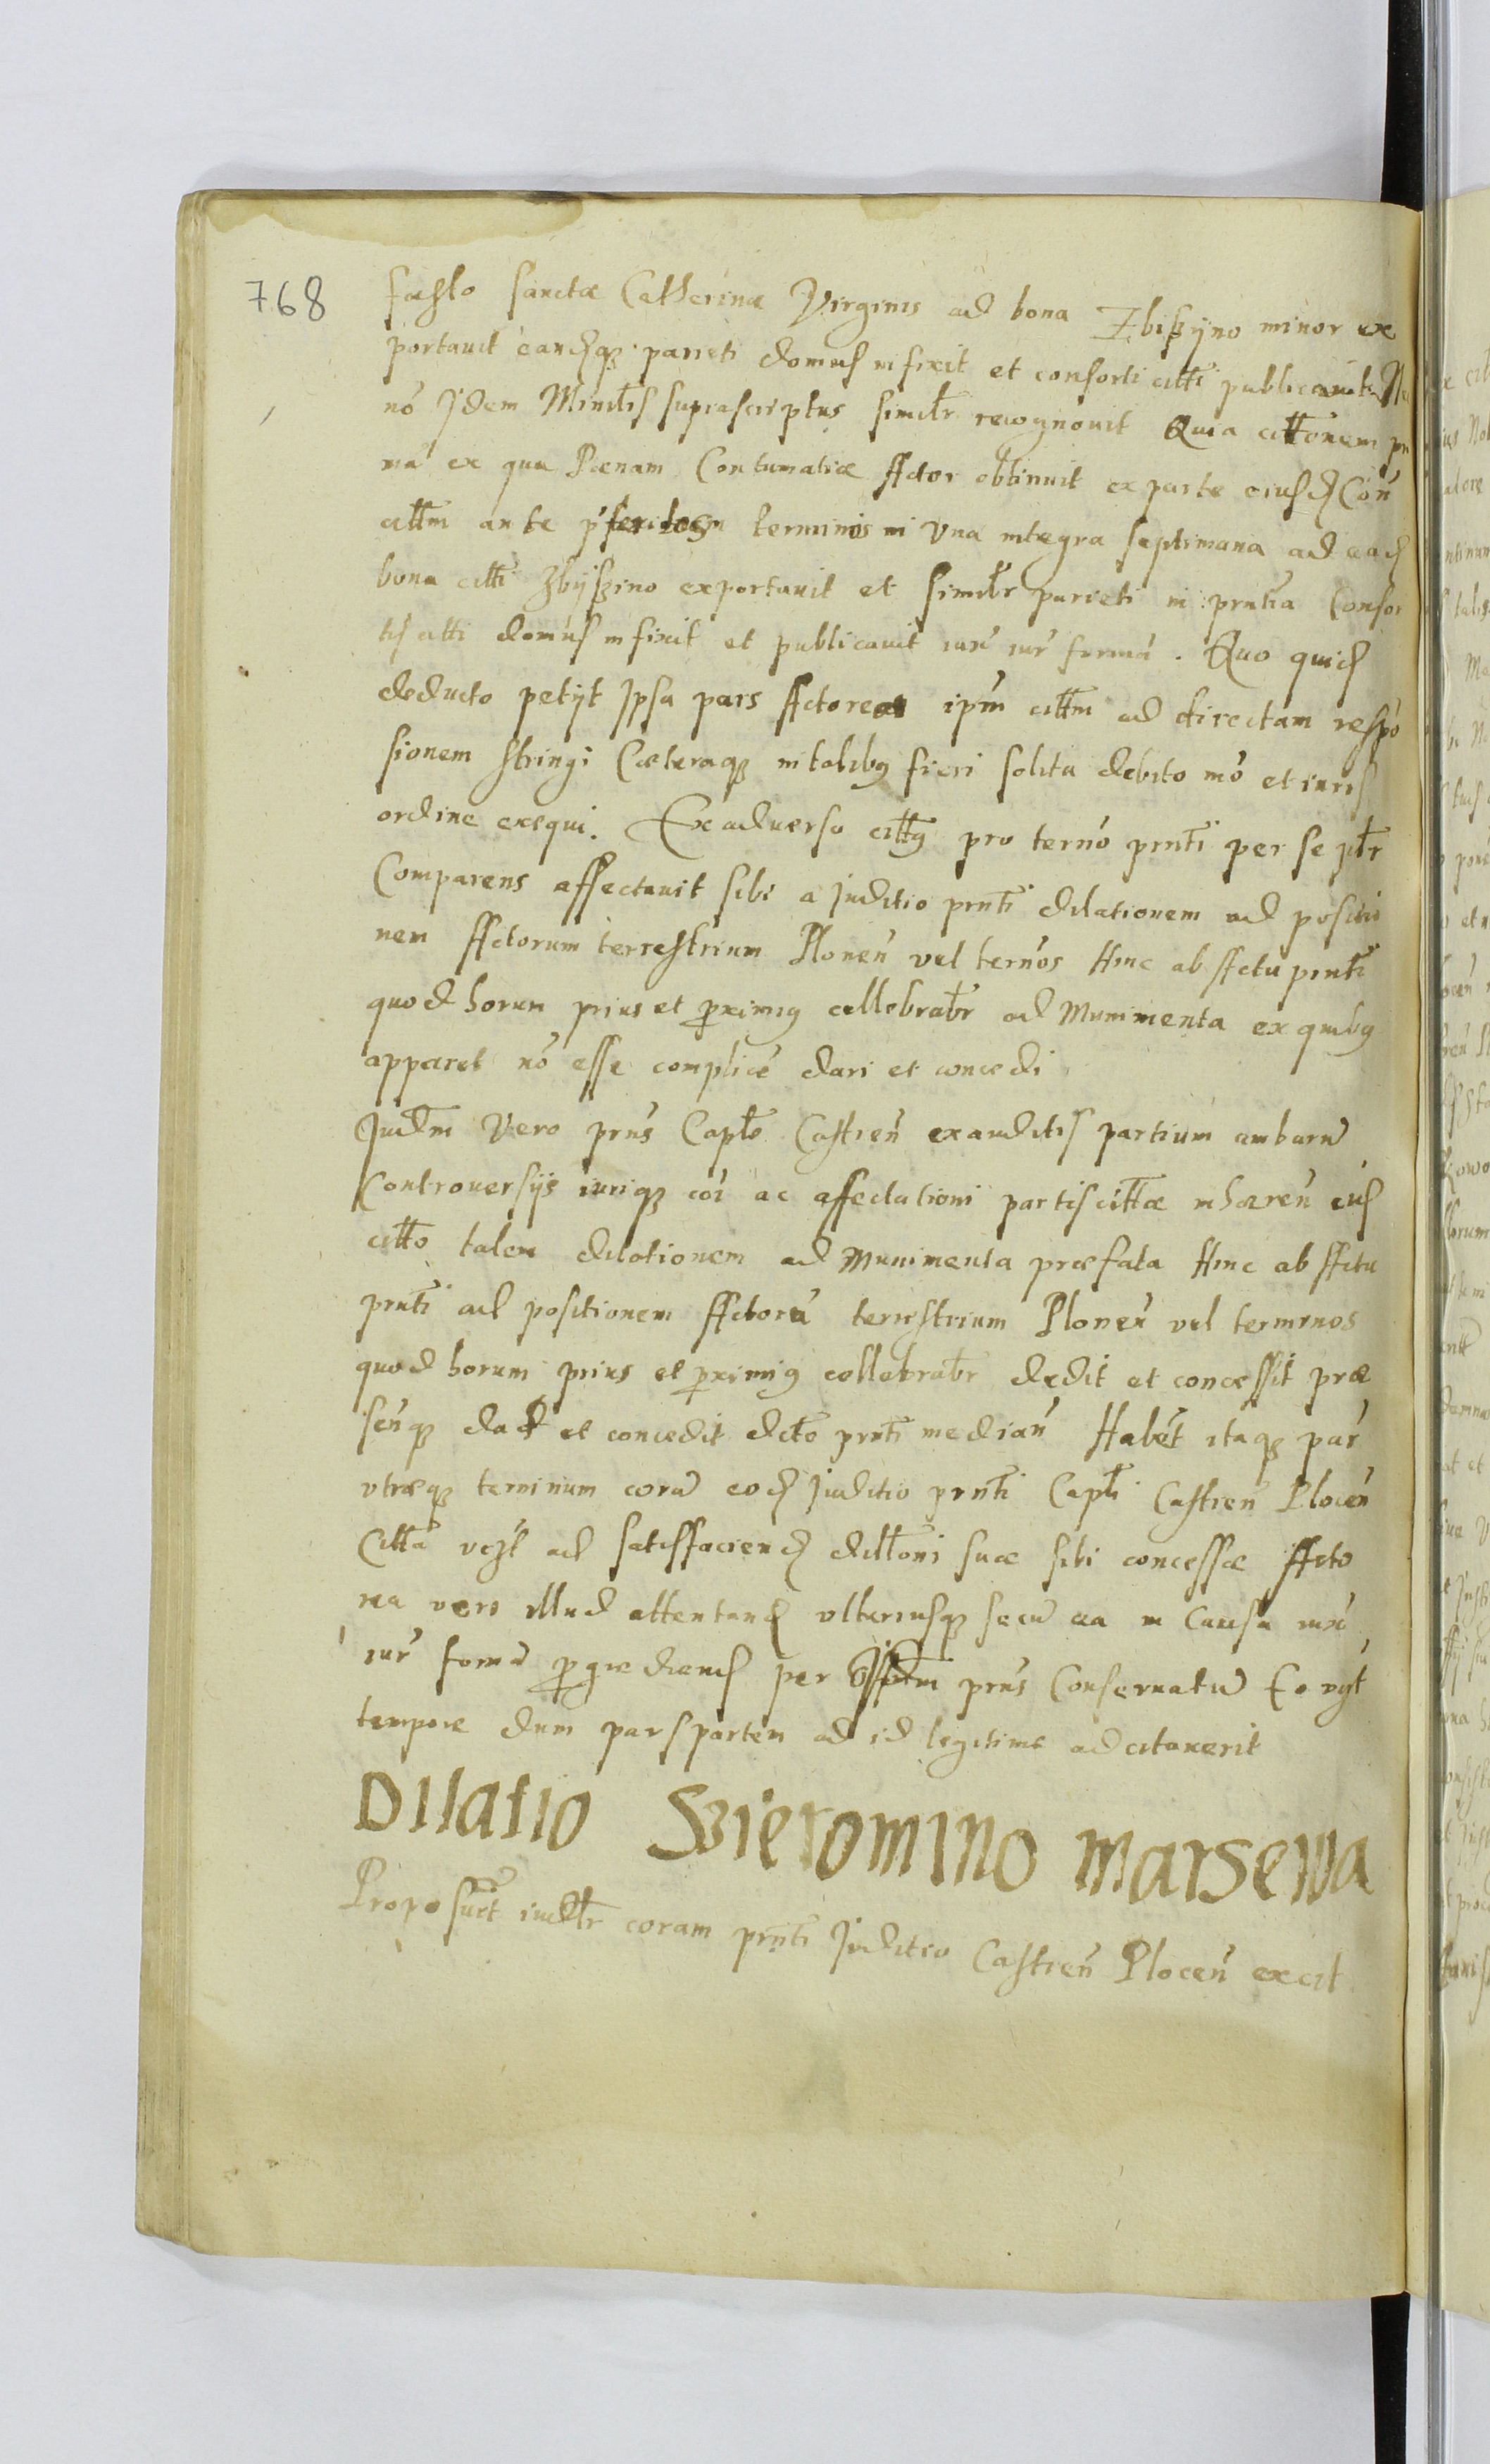 768
foesto Sanctæ Catherinæ Virginis ad bona Zbißyno minor ex
portauit eandqz parieti domus infixit et consorti citti publicauit Nec
nō Idem Minrlis suprascriptus similr recognouit Quia cittonem pri
mā ex qua Pœnam Contumatiæ Actor obtinuit ex parte eiusd Con
cittm ante terminis in Vna integra septimana ad ead
bona citti Zbyßino exportauit et similr parieti in prntia Consor
tis citti domus infixit et publicauit iux iur formā. Quo quid
deducto petijt Ipsa pars Actorea ipm cittm ad directam respō
sionem stringi Cæteraqz in talibq fieri solita debito mō et iuris
ordine exequi. Ex aduerso cittq pro ternō prnti per se pltr
Comparens affectauit sibi a Juditio prnti dilationem ad positio
nem Actorum terrestrium Plonen vel ternos Hinc ab Actu prnti
quod horum prius et proximiq cellebrabr ad Munimenta ex quibq
apparet nō esse complicē dari et concedi
Judm Vero prns Caplo Castren exauditis partium ambarū
Controuersijs iuriqz coi ac affectationi partis cittæ inhæren eid
citto talem dilationem ad Munimenta præfata Hinc ab Actu
prnti ad positionem Actorū terrestrium Plonen vel terminos
quod horum prius et proximiq cellebrabr dedit et concessit præ
senqz dat et concedit dcto prnti median Habēt itaqz par
vtræqz terminum corā eod Juditio prnti Capli Castren Plocen
Citta vczt ad satisfaciend diltoni suæ sibi concessæ Acto
rea vero illud attentand vlteriusqz secū ea in Causa iux
iur formā progrediend per prns Conseruatū Eo vzt
tempore dum pars partem ad id legitime adcitauerit
Dilatio Hieromino Marsewa
Proposuit iudlr coram prnti Juditio Castren Plocen ex cit